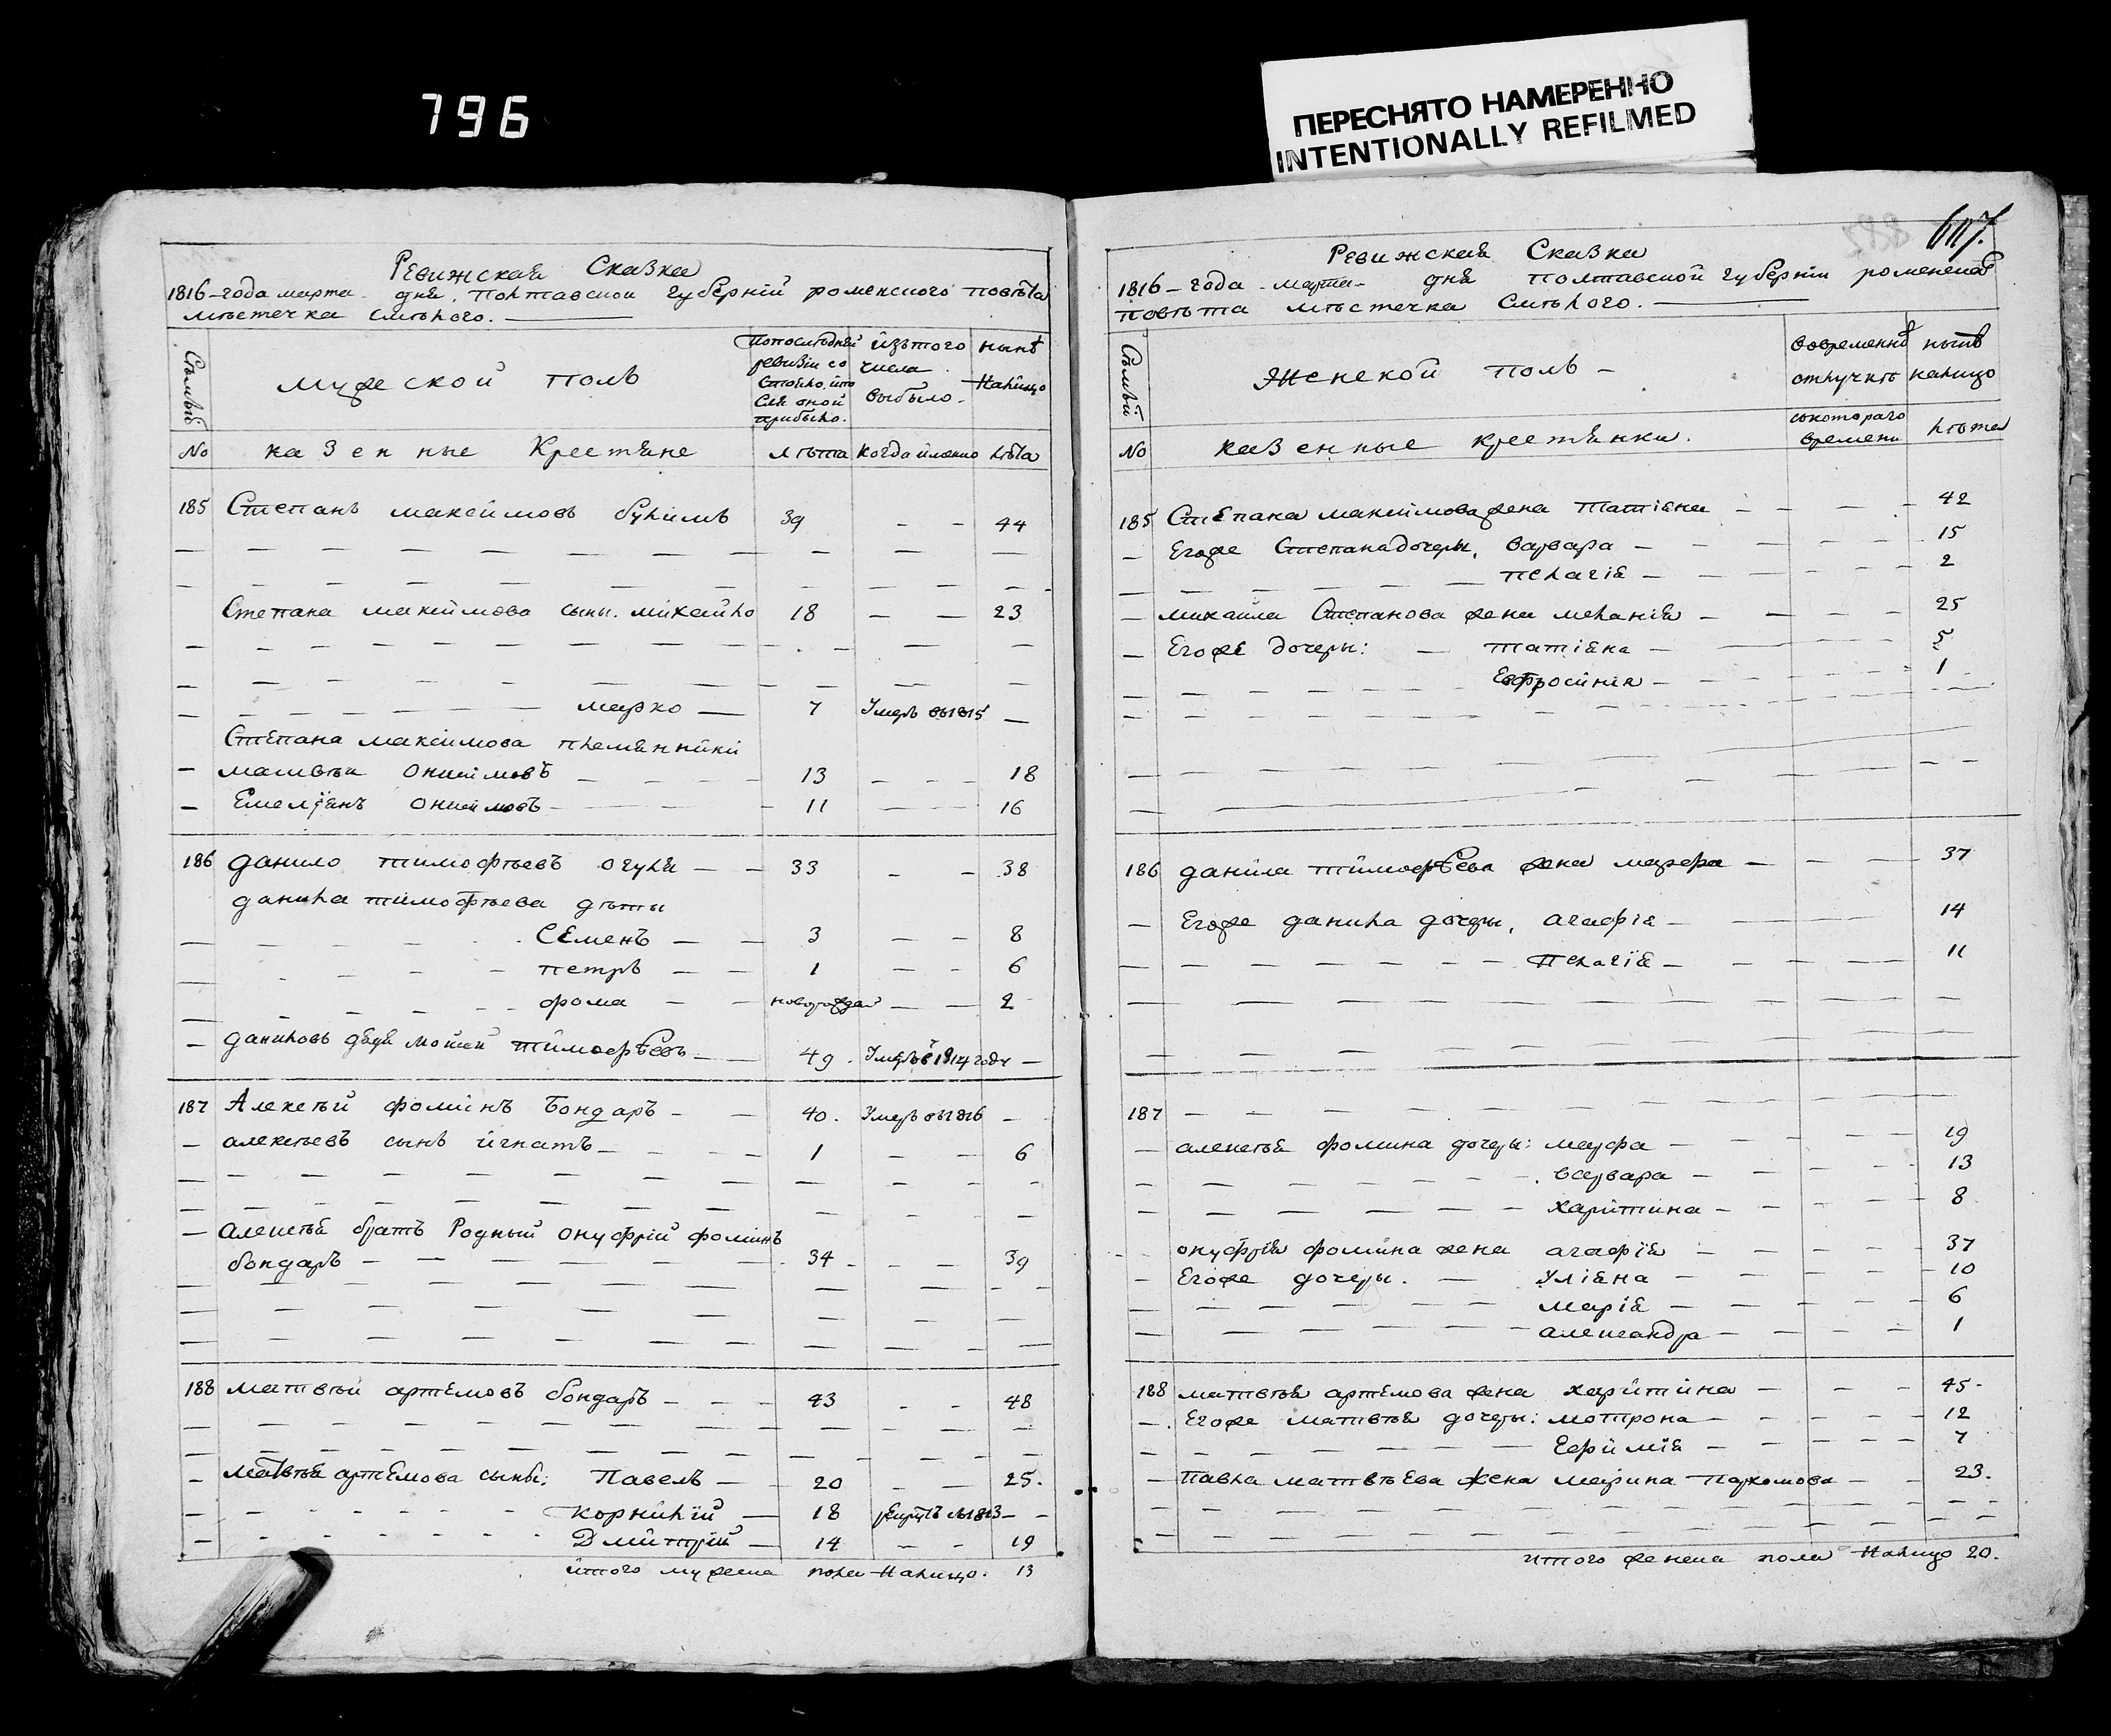 796
ПЕРЕСНЯТО НАМЕРЕННО
INTENTIONALLY REFILMED
Ревижская Сказка
1816-года марта дня. Полтавской губерній роменского повѣта
мѣстечка Смѣлого.
Семьи
мужеской полъ
По последней ревизіи состояло, и после оной прибыло.
изъ того числа выбыло.
нынѣ налицо
№
казенные Крестяне
лѣта
когда именно
лѣта
185 Степанъ максимовъ булимъ 39 - - 44
Степана максимова сыны. михайло 18 - - 23
марко 7 Умеръ въ 1815 -
Степана максимова племянники
матвѣй онисимовъ 13 - - 18
Емелянъ онисимовъ 11 - - 16
186 данило тимофѣевъ огуля 33 - - 38
данила тимофѣева дѣти
Семенъ 3 - - 8
петръ 1 - - 6
фома новорожден - - 2
даниловъ дядя мойсей тимофѣевъ 49. Умеръ в 1814 году -
187 Алексѣй фоминъ бондаръ 40. Умеръ въ 1816 -
алексѣевъ сынъ игнатъ 1 - - 6
алексѣя братъ Родный онуфрій фоминъ
бондаръ 34 - - 39
188 матвѣй артемовъ бондаръ 43 - - 48
матвѣя артемова сыны: Павелъ 20 - - 25.
корнилій 18 въ 1813 -
Дмитрій 14 - - 19
итого мужеска пола Налицо. 13
607.
Ревижская Сказка
1816-года марта дня Полтавской губерніи роменского
повѣта мѣстечка Смѣлого.
Семьи
Женской полъ
во временной отлучкѣ
нынѣ налицо
№
казенные крестянки.
с котораго времени
лѣта
185 Степана максимова жена татіяна 42
Егоже Степана дочеры, варвара 15
пелагія 2
михайла Степанова жена меланія 25
Егоже дочеры: татіяна 5
Евфросинія 1
186 данила тимофѣева жена марфа 37
Егоже данила дочеры, агафія 14
Пелагія 11
187
алексѣя фомина дочеры: марфа 19
варвара 13
харитина 8
онуфрія фомина жена агафія 37
Егоже дочеры. уліяна 10
марія 6
александра 1
188 матвѣя артемова жена харитина 45
Егоже матвѣя дочеры: мотрона 12
Ефимія 7
павла матвѣева жена марина пархомова 23.
итого женска пола Налицо 20.